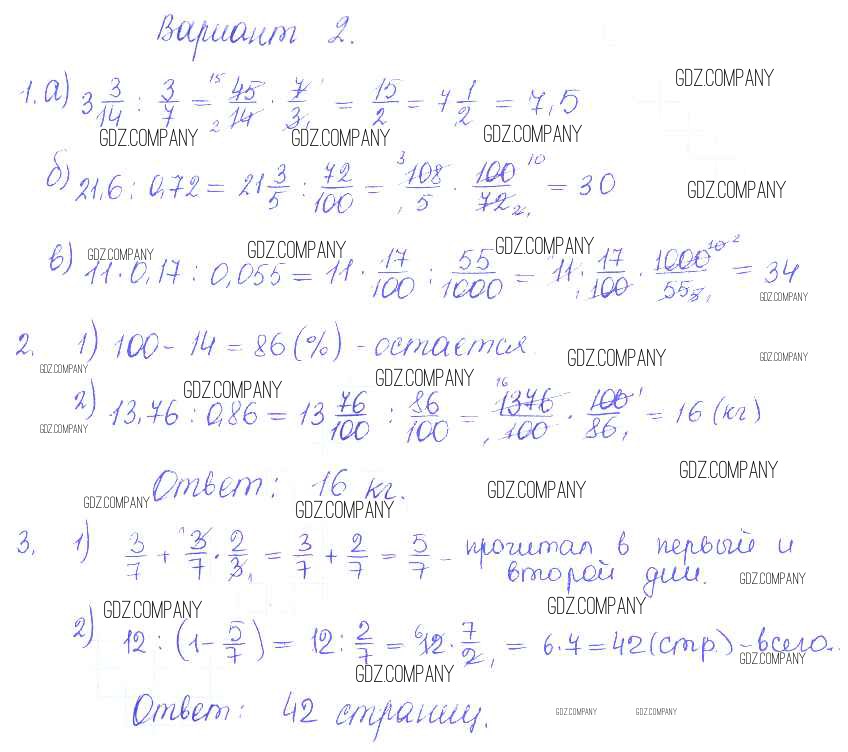 Вариант 2.
GDZ.COMPANY
1. а) 3 3/14 : 3/7 = 45/14 · 7/3 = 15/2 = 7 1/2 = 7,5
GDZ.COMPANY GDZ.COMPANY GDZ.COMPANY
б) 21,6 : 0,72 = 21 3/5 : 72/100 = 108/5 · 100/72 = 30
GDZ.COMPANY
GDZ.COMPANY GDZ.COMPANY GDZ.COMPANY
в) 11 · 0,17 : 0,055 = 11 · 17/100 : 55/1000 = 11 · 17/100 · 1000/55 = 34
GDZ.COMPANY
2. 1) 100 - 14 = 86 (%) - остаётся.
GDZ.COMPANY GDZ.COMPANY GDZ.COMPANY
GDZ.COMPANY GDZ.COMPANY
2) 13,76 : 0,86 = 13 76/100 : 86/100 = 1376/100 · 100/86 = 16 (кг)
GDZ.COMPANY
GDZ.COMPANY
Ответ: 16 кг.
GDZ.COMPANY GDZ.COMPANY GDZ.COMPANY
3. 1) 3/7 + 3/7 · 2/3 = 3/7 + 2/7 = 5/7 - прочитал в первый и
второй дни.
GDZ.COMPANY
GDZ.COMPANY GDZ.COMPANY
2) 12 : (1 - 5/7) = 12 : 2/7 = 12 · 7/2 = 6 · 7 = 42 (стр.) - всего.
GDZ.COMPANY GDZ.COMPANY
Ответ: 42 страницы.
GDZ.COMPANY GDZ.COMPANY